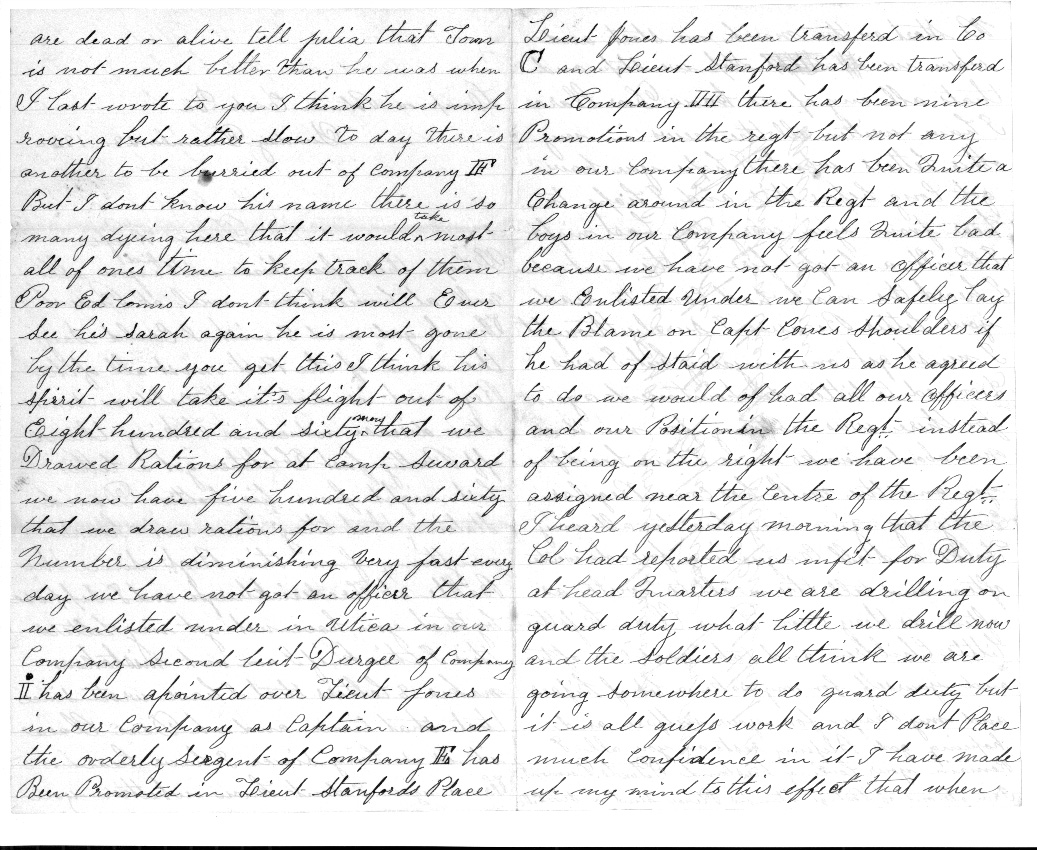 are dead or alive tell julia that Tom
is not much better than he was when
I last wrote to you I think he is imp
roveing but rather slow to day there is
another to be burried out of Company E
But I dont know his name there is so
many dyeing here that it would take most
all of ones time to keep track of them
Poor Ed lomis I dont think will Ever
see his sarah again he is most gone
by the time you get this I think his
spirit will take it's flight out of
Eight hundred and sixty men that we
Drawed Rations for at Camp Seward
we now have five hundred and sixty
that we draw rations for and the
Number is diminishing Very fast every
day we have not got an officer that
we enlisted under in Utica in our
Company Second leut Durgee of Company
I has been apointed over Lieut Jones
in our Company as Captain and
the orderly Sergent of Company E has
Been Promoted in Lieut Stanfords Place
Lieut Jones has been transferd in Co
C and Lieut Stanford has been transferd
in Company H there has been nine
Promotions in the regt but not any
in our Company there has been Quite a
Change around in the Regt and the
boys in our Company feels Quite bad
because we have not got an officer that
we Enlisted Under we Can Safely lay
the Blame on Capt Cones Shoulders if
he had of staid with us as he agreed
to do we would of had all our officers
and our Position in the Regt. instead
of being on the right we have been
assigned near the Centre of the Regt.
I heard yesterday morning that the
Col had reported us unfit for Duty
at head Quarters we are drilling on
guard duty what little we drill now
and the soldiers all think we are
going somewhere to do guard duty but
it is all guess work and I dont Place
much Confidence in it I have made
up my mind to this effect that when